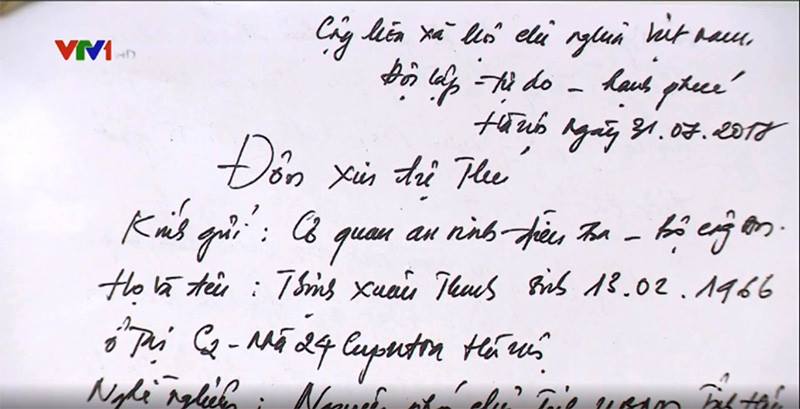 VTV1
Cộng hòa xã hội chủ nghĩa Việt nam.
Độc lập - tự do - hạnh phúc
Hà nội ngày 31.07.2017
Đơn xin tự Thú
Kính gửi: Cơ quan an ninh điều tra - Bộ công an.
Họ và tên: Trịnh Xuân Thanh sinh 13.02.1966
ở Tại C2 - Nhà 24 Ciputra Hà nội
Nghề nghiệp: Nguyên phó chủ Tịch UBND Tỉnh